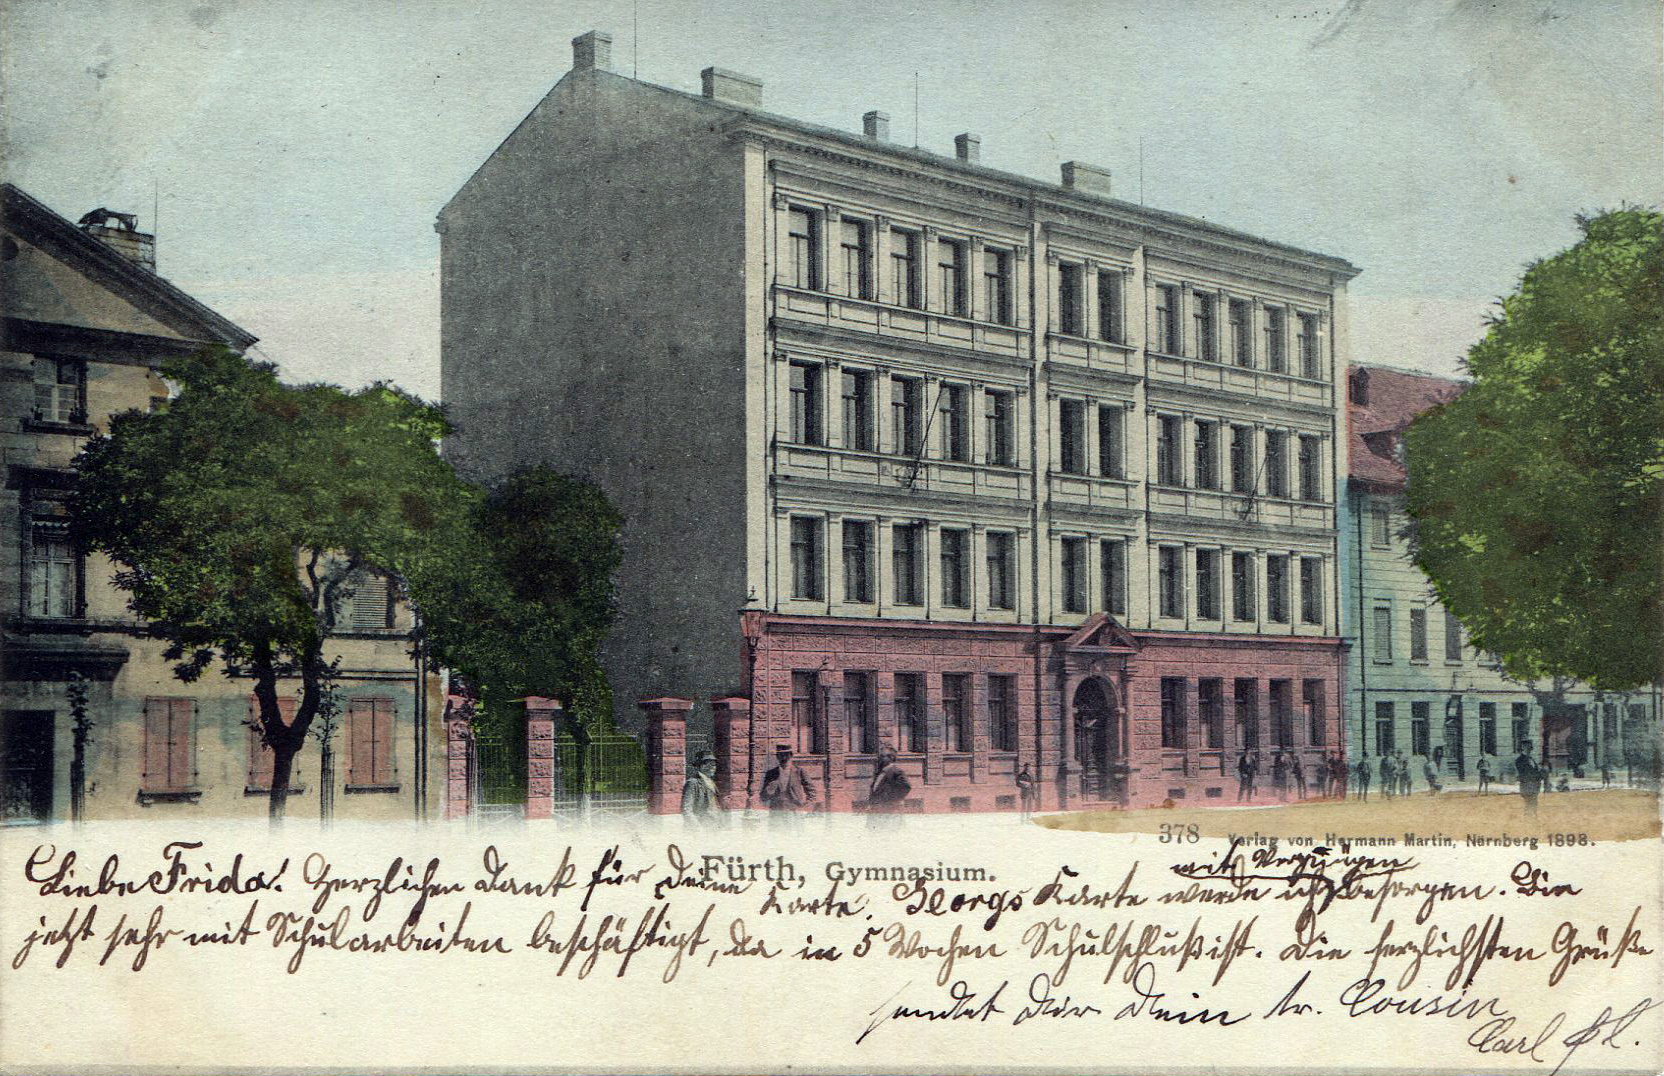 378 Verlag von Hermann Martin, Nürnberg 1898.
Fürth, Gymnasium.
Liebe Frida! Herzlichen Dank für Deine Karte. Georgs Karte werde ich mit Vergnügen besorgen. Bin
jetzt sehr mit Schularbeiten beschäftigt, da in 5 Wochen Schulschluß ist. Die herzlichsten Grüße
sendet Dir Dein tr. Cousin
Carl